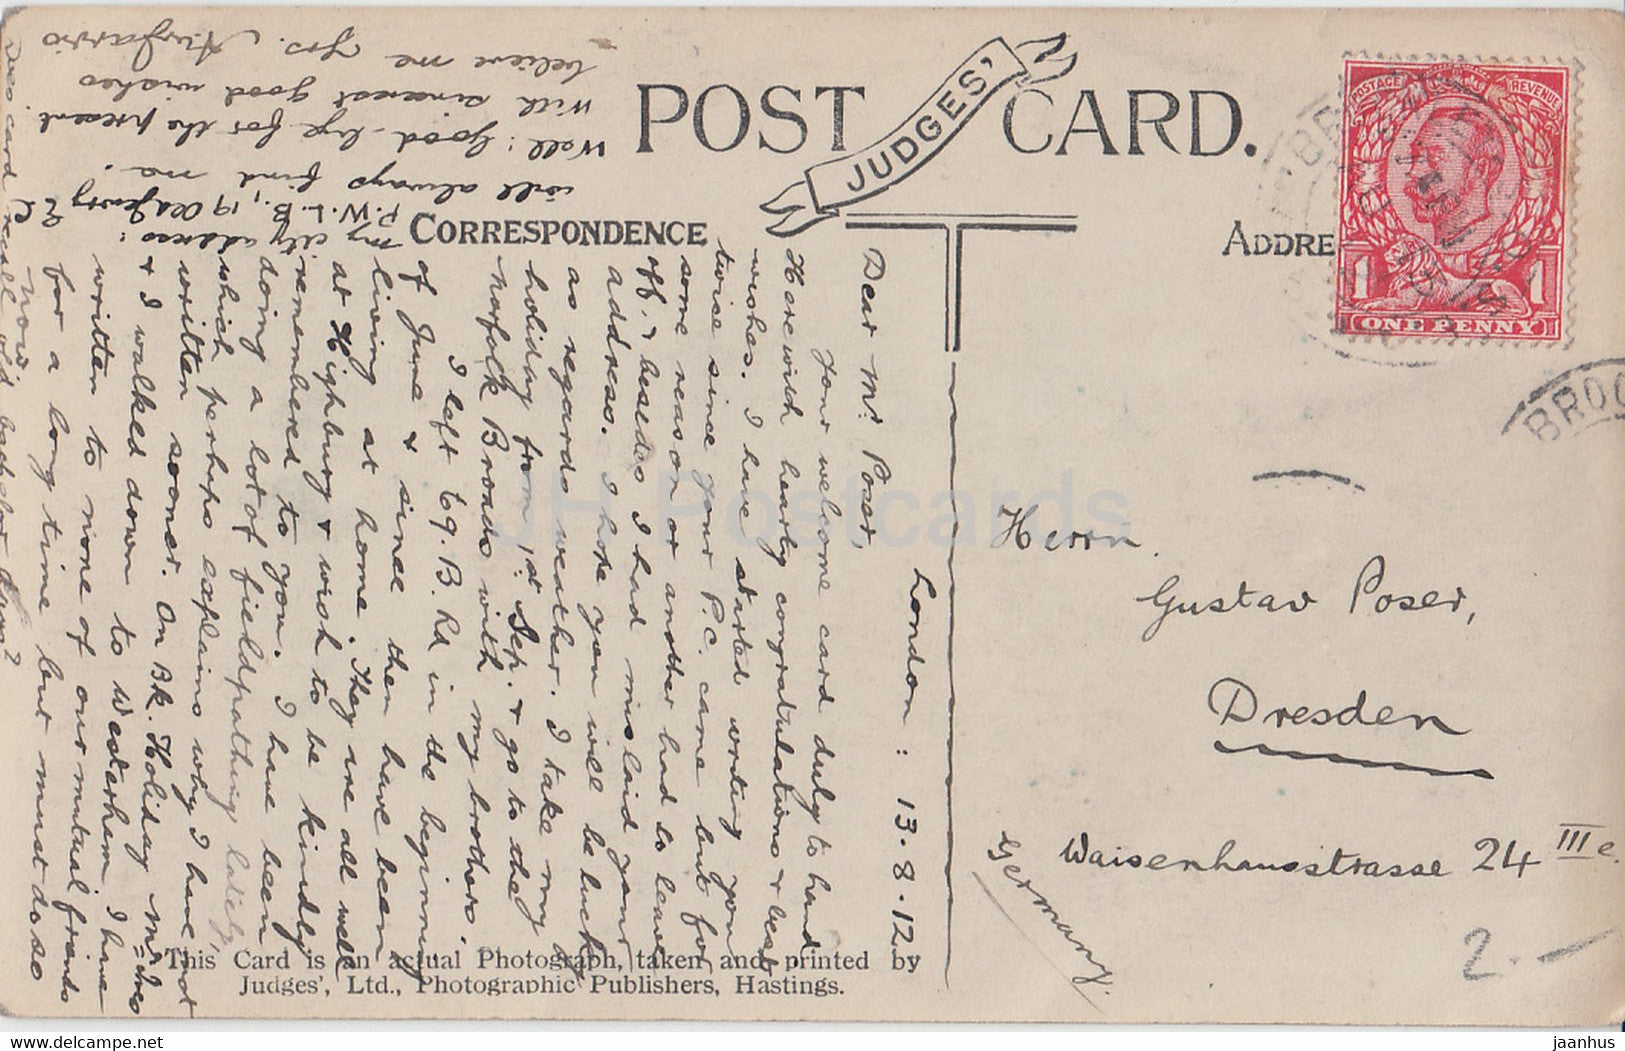 POST CARD.
JUDGES'
CORRESPONDENCE
ADDRE
POSTAGE REVENUE
1 1
ONE PENNY
BROC
London: 13.8.12
Dear Mr. Poser,
Your welcome card duly to hand
Herewith hearty congratulations & best
wishes. I have started writing you
twice since your P.C. came but for
some reason or another had to leave
off. & besides I had mislaid your
address. I hope you will be lucky
as regards weather. I take my
holiday from 1st Sep. & go to the
Norfolk Broads with my brothers.
I left 69. B. Rd in the beginning
of June & since then have been
living at home. They are all well
at Highbury & wish to be kindly
remembered to you. I have been
doing a lot of fieldpathing lately,
which perhaps explains why I have not
written sooner. On Bk. Holiday Mr Ives
& I walked down to Westerham. I have
written to none of our mutual friends
for a long time but must do so
now.
my city address:
P.W.L.B., 19 Old Jewry E.C.
will always find me.
Well: good-bye for the present
With sincerest good wishes
believe me Yrs.
Does card recall old bachelor days?
Herrn.
Gustav Poser,
Dresden
Waisenhausstrasse 24 III e.
Germany.
2.-
This Card is an actual Photograph, taken and printed by
Judges', Ltd., Photographic Publishers, Hastings.
JH Postcards
www.hippostcard.com
jaanhus